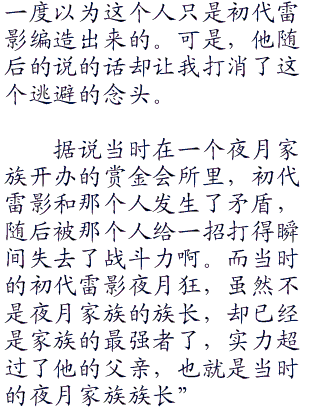 一度以为这个人只是初代雷
影编造出来的。可是，他随
后的说的话却让我打消了这
个逃避的念头。
据说当时在一个夜月家
族开办的赏金会所里，初代
雷影和那个人发生了矛盾，
随后被那个人给一招打得瞬
间失去了战斗力啊。而当时
的初代雷影夜月狂，虽然不
是夜月家族的族长，却已经
是家族的最强者了，实力超
过了他的父亲，也就是当时
的夜月家族族长”